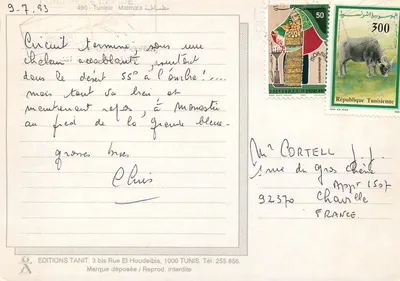 9-7.93
490 - Tunisie Matmata مطماطة
Circuit terminé, sous une
chaleur accablante, surtout
dans le désert 55° à l'ombre!....
mais tout va bien et
maintenant repos, à Monastir
au pied de la grande bleue.
grosses bises
Chris
50
300
République Tunisienne
Mr CORTELL J.J.
1 rue du Gros Chêne
Appt 1507
92370 Chaville
FRANCE
EDITIONS TANIT : 3 bis Rue El-Houdeibie, 1000 TUNIS Tél: 255.656.
Marque déposée / Reprod. interdite